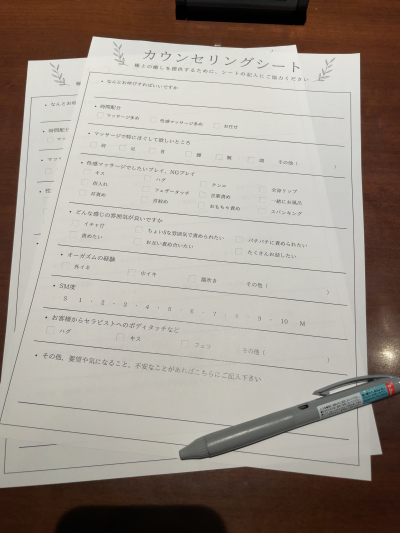 カウンセリングシート
極上の癒しを提供するために、シートの記入にご協力ください
• なんとお呼びすればいいですか
• 時間配分
マッサージ多め 性感マッサージ多め お任せ
• マッサージで特にほぐして欲しいところ
肩 首 腰 腕 その他（ ）
• 性感マッサージでしたいプレイ、NGプレイ
キス ハグ クンニ 全身リップ
指入れ フェザータッチ 言葉責め 一緒にお風呂
耳責め 足舐め おもちゃ責め スパンキング
• どんな感じの雰囲気が良いですか
イチャ甘 ちょいSな雰囲気で責められたい バチバチに責められたい
責めたい お互い責め合いたい たくさんお話したい
• オーガズムの経験
外イキ 中イキ 潮吹き その他（ ）
• SM度
S 1 ・ 2 ・ 3 ・ 4 ・ 5 ・ 6 ・ 7 ・ 8 ・ 9 ・ 10 M
• お客様からセラピストへのボディタッチなど
ハグ キス フェラ その他（ ）
• その他、要望や気になること、不安なことがあればこちらにご記入下さい